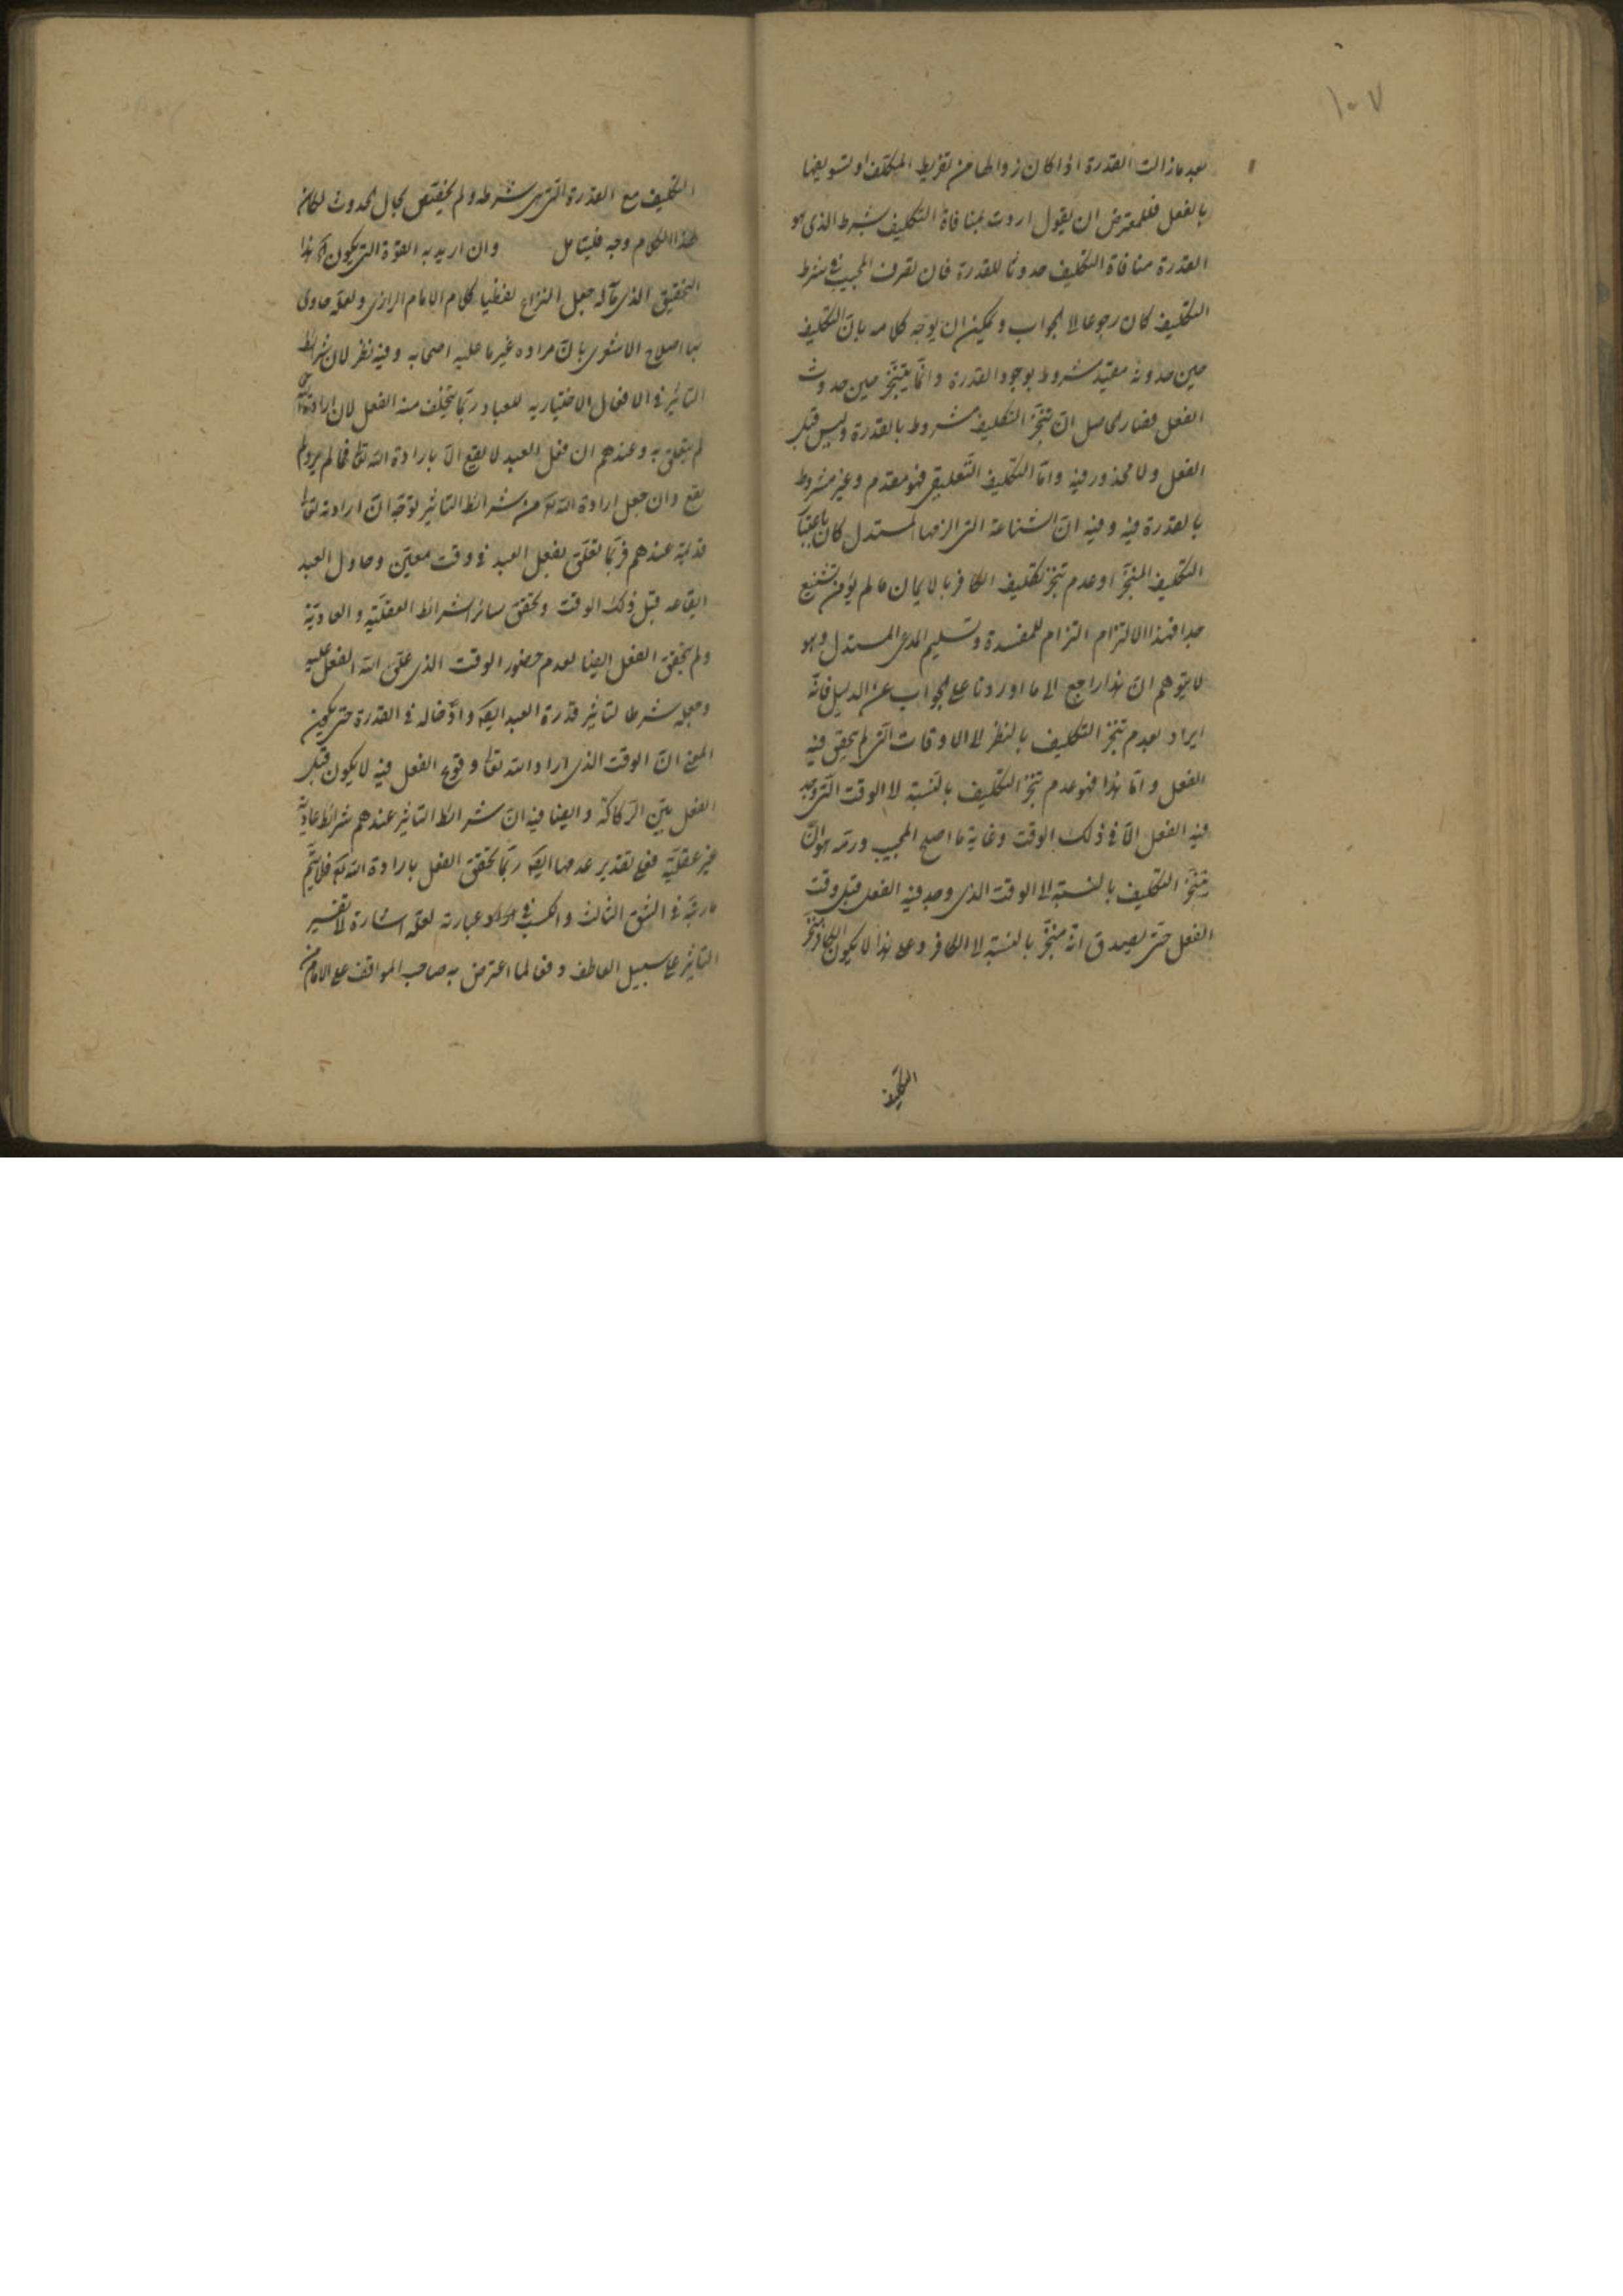 ١٠٧
بعد ما زالت القدرة اذا كان زوالها من تفريط المكلف او تسويفها
بالفعل فللمعترض ان يقول اردت بمنافاة التكليف شرط الذى هو
القدرة منافاة التكليف حدوثا للقدرة فان تصرف المجيب فى شرط
التكليف كان رجوعا لا لجواب ويمكن ان يوجّه كلامه بان التكليف
حين حدوثه مقيّد مشروط بوجود القدرة وانّما يتنجّز حين حدوث
الفعل فصار حاصل ان تنجّز التكليف مشروط بالقدرة وليس قبل
الفعل ولا محذور فيه وامّا التكليف التّعليقى فهو مقدم وغير مشروط
بالقدرة فيه وفيه انّ الشناعة التى الزمها المستدل كان باعتبار
التكليف المنجّز او عدم تنجّز تكليف الكافر بالايمان ما لم يؤمن تشنيع
جدا فهذا الالتزام التزام للمفسدة وتسليم لمدعى المستدل وهو
لا يتوهم انّ هذا راجع الى ما اوردنا على الجواب عن الدليل فانّه
ايراد بعدم تنجّز التكليف بالنظر الى الاوقات التى لم يتحقق فيه
الفعل وامّا هذا فهو عدم تنجّز التكليف بالنسبة الى الوقت الذى وجد
فيه الفعل الّا فى ذلك الوقت وغاية ما اصلح المجيب ورمّه هو انّ
يتنجّز التكليف بالنسبة الى الوقت الذى وجد فيه الفعل قبل وقت
الفعل حتّى يصدق انّه منجّز بالنسبة الى الكافر وعلى هذا لا يكون
التكليف
التكليف مع القدرة التى هى شرطه ولم يختص بحال الحدوث لكان
لهذا الكلام وجه فليتامل وان اريد به القوة التى يكون هذا
التحقيق الذى مآله جعل النزاع لفظيا كلام الامام الرازى ولعله حاول
بها اصلاح الاشعرى بانّ مراده غير ما عليه اصحابه وفيه نظر لان شرائط
التأثير فى الافعال الاختيارية للعباد ربّما يتخلّف منه الفعل لان ارادة
لم يتعلق به وعندهم ان فعل العبد لا يقع الّا بارادة الله تعالى فما لم يرد لم
يقع وان جعل ارادة الله من شرائط التأثير لوجّه انّ ارادته تعالى
قديمة عندهم فربّما تعلّق بفعل العبد فى وقت معيّن وحاول العبد
ايقاعه قبل ذلك الوقت وتحقق سائر الشرائط العقليّة والعاديّة
ولم يتحقق الفعل ايضا لعدم حضور الوقت الذى علّق الله الفعل عليه
وجعله شرطا لتأثير قدرة العبد ايضا وادّخاله فى القدرة حتى يكون
المعنى انّ الوقت الذى اراد الله تعالى وقوع الفعل فيه لا يكون قبل
الفعل بيّن الرّكاكة وايضا فيه انّ شرائط التأثير عندهم شرائط عادية
غير عقليّة فعلى تقدير عدمها ايضا ربّما تحقق الفعل بارادة الله فلا يتمّ
ما رتبه فى الشق الثالث والكسب فى عبارته لعلّه اشارة لا تفسير
التأثير على سبيل العاطف وفقا لما اعترض به صاحب المواقف على الامام من